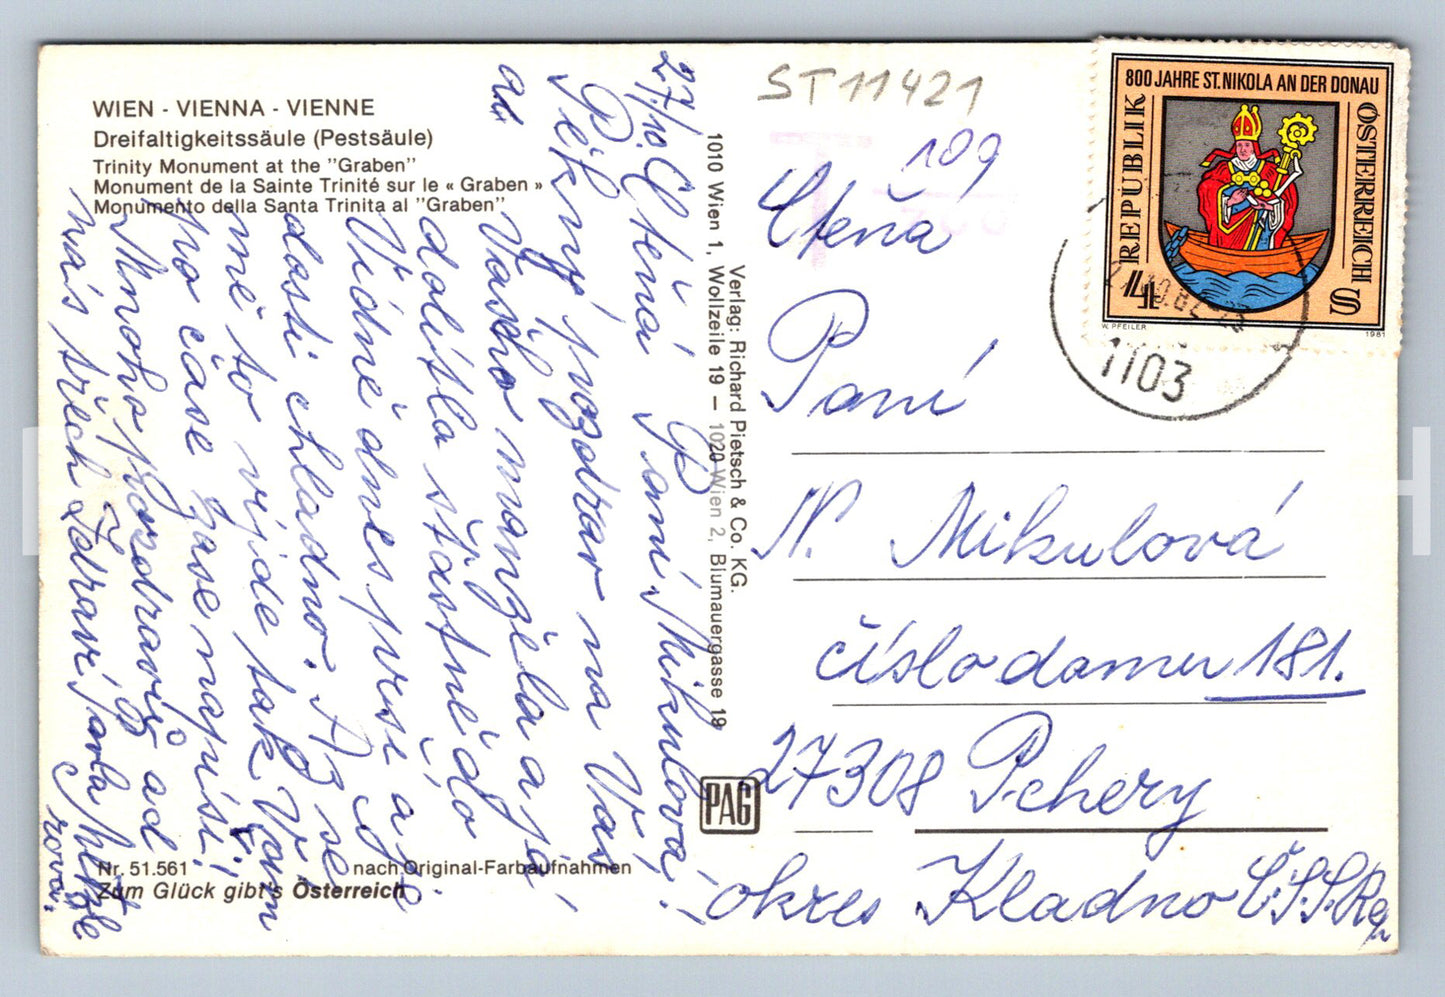 WIEN - VIENNA - VIENNE
Dreifaltigkeitssäule (Pestsäule)
Trinity Monument at the "Graben"
Monument de la Sainte Trinité sur le « Graben »
Monumento della Santa Trinita al "Graben"
27/10. Ctěná Paní Mikulová!
Pěkný pozdrav na Vás
a Vašho manžela a já
dolítla štastně do
Vídně dnes prší a je
dosti chladno. A se
mě to vijde tak Vám
po čase zase napíši!
Mnoho pozdravů od
nás všech Zdraví
Nr. 51.561
nach Original-Farbaufnahmen
Zum Glück gibt's Österreich
1010 Wien 1, Wollzeile 19 – 1020 Wien 2, Blumauergasse 19
Verlag: Richard Pietsch & Co. KG.
PAG
ST11421
109
T
800 JAHRE ST. NIKOLA AN DER DONAU
REPUBLIK
ÖSTERREICH
4
S
W. PFEILER
1981
1103
Ctěná
Paní
N. Mikulová
číslo domu 181.
27308 Pchery
okres Kladno Č.S.S.Rep